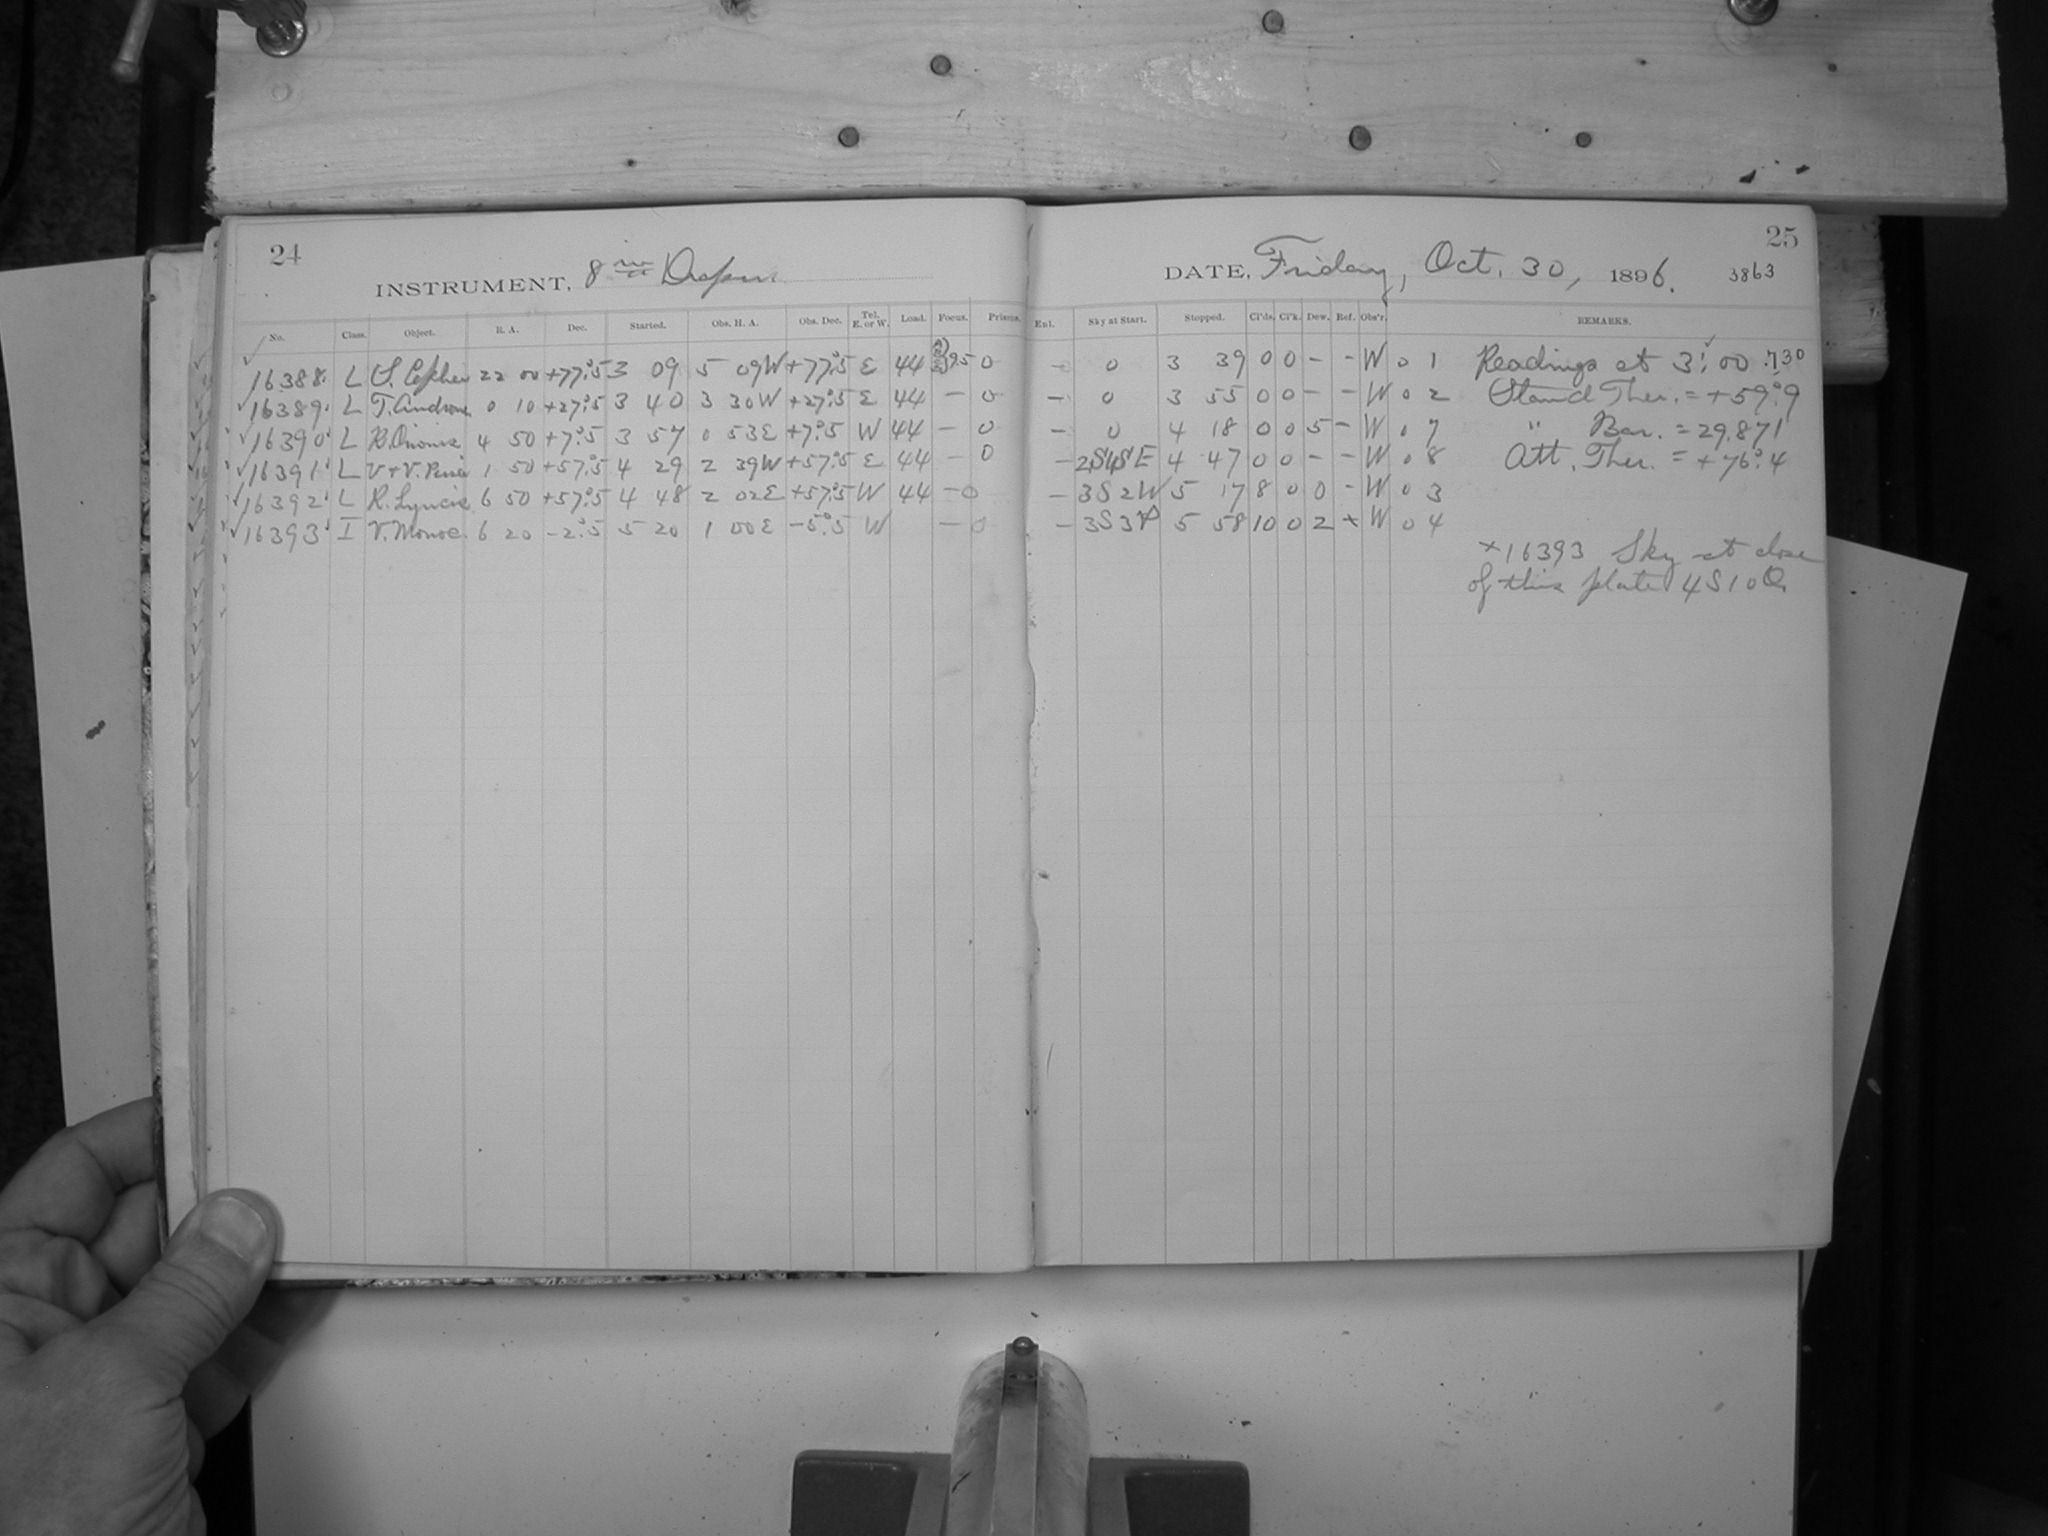 24
INSTRUMENT, 8 in Draper
No. Class. Object. R. A. Dec. Started. Obs. H. A. Obs. Dec. Tel. E. or W. Load. Focus. Prisms.
16388 L S. Cephei 22 00 +77°.5 3 09 5 09W +77°.5 E 44 0
16389 L T. Androm 0 10 +27°.5 3 40 3 30W +27°.5 E 44 – 0
16390 L R. Orionis 4 50 +7°.5 3 57 0 53E +7°.5 W 44 – 0
16391 L U+V. Persei 1 50 +57°.5 4 29 2 39W +57°.5 E 44 – 0
16392 L R. Lyncis 6 50 +57°.5 4 48 2 02E +57°.5 W 44 – 0
16393 I V. Monoc. 6 20 –2°.5 5 20 1 00E –5°.5 W – 0
25
DATE, Friday, Oct. 30, 1896. 3863
Ent. Sky at Start. Stopped. Cl'ds. Cl'k. Dew. Ref. Obs'r. REMARKS.
– 0 3 39 0 0 – – W 0 1 Readings at 3:00 .730
– 0 3 55 0 0 – – W 0 2 Stand Ther. = +59°.9
– 0 4 18 0 0 5 – W 0 7 " Bar. = 29.871
– 2S4SE 4 47 0 0 – – W 0 8 Att. Ther. = +76°.4
– 3S2W 5 17 8 0 0 – W 0 3
– 5 58 10 0 2 × W 0 4
×16393 Sky at close
of this plate 4S10